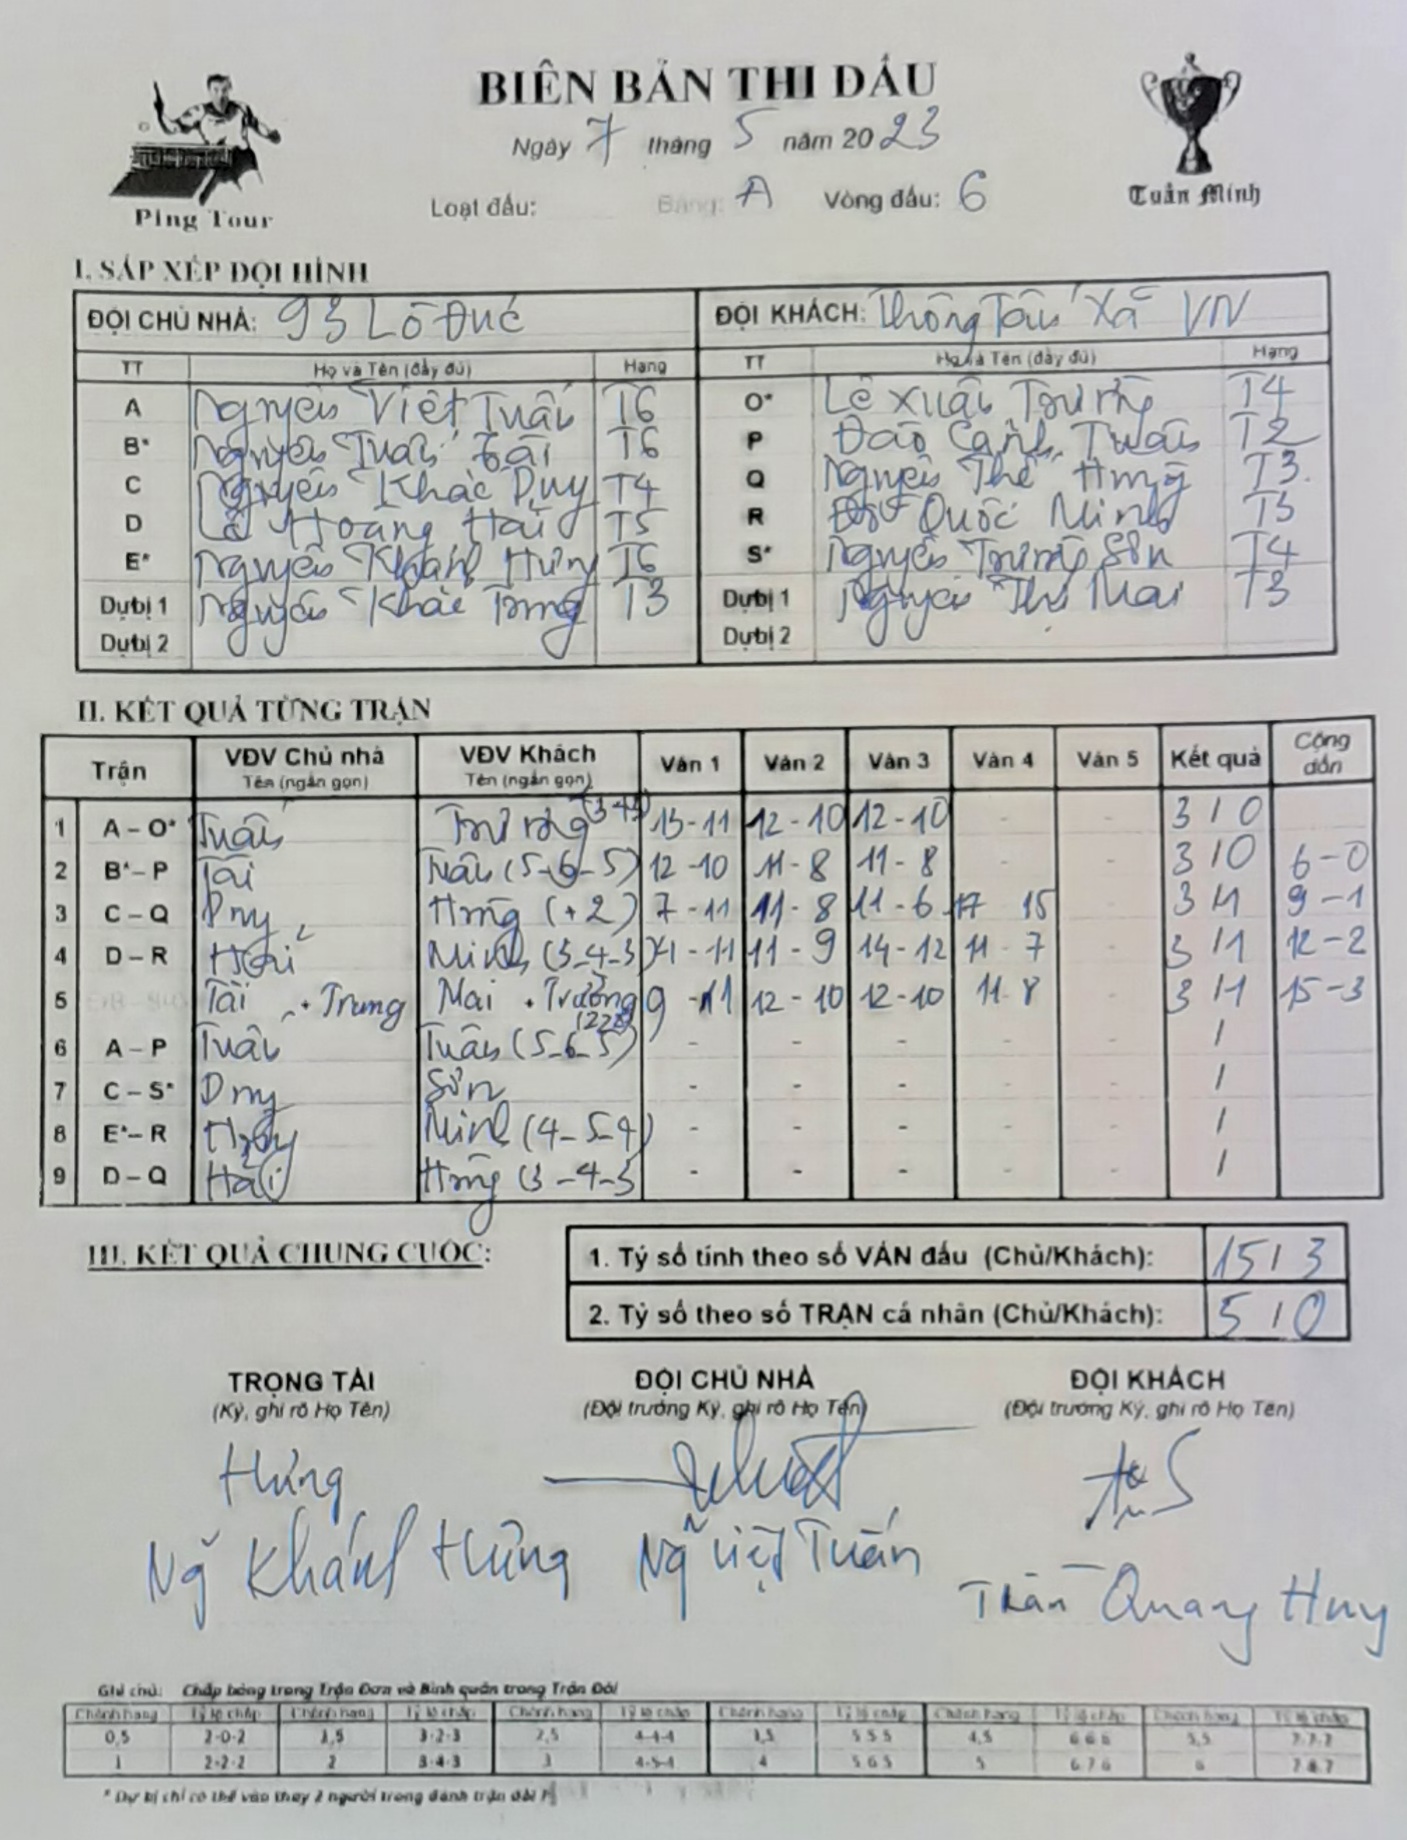 BIÊN BẢN THI ĐẤU
Ngày 7 tháng 5 năm 2023
Ping Tour
Loạt đấu: Bảng: A Vòng đấu: 6
Tuấn Minh
I. SẮP XẾP ĐỘI HÌNH
ĐỘI CHỦ NHÀ: 93 Lò Đúc ĐỘI KHÁCH: Thông Tấn Xã VN
TT Họ và Tên (đầy đủ) Hạng TT Họ và Tên (đầy đủ) Hạng
A Nguyễn Việt Tuấn T6 O* Lê Xuân Trường T4
B* Nguyễn Tuấn Tài T6 P Đào Cảnh Tuân T2
C Nguyễn Khắc Duy T4 Q Nguyễn Thế Hưng T3.
D Lê Hoàng Hải T5 R Quốc Minh T3
E* Nguyễn Khánh Hưng T6 S* Nguyễn Trường Sơn T4
Dự bị 1 Nguyễn Khắc Trung T3 Dự bị 1 Nguyễn Thị Mai T3
Dự bị 2 Dự bị 2
II. KẾT QUẢ TỪNG TRẬN
Trận VĐV Chủ nhà Tên (ngắn gọn) VĐV Khách Tên (ngắn gọn) Ván 1 Ván 2 Ván 3 Ván 4 Ván 5 Kết quả Cộng dồn
1 A – O* Tuấn Trường 13-11 12-10 12-10 - - 3 / 0
2 B* – P Tài Tuân (5-6-5) 12-10 11-8 11-8 - - 3 / 0 6-0
3 C – Q Duy Hưng (+2) 7-11 11-8 11-6 17 15 - 3 / 1 9-1
4 D – R Hải Minh (3-4-3) 11-9 14-12 11-7 - 3 / 1 12-2
5 Tài + Trung Mai + Trường 9-11 12-10 12-10 11-8 - 3 / 1 15-3
6 A – P Tuấn Tuân (5-6-5) - - - - - /
7 C – S* Duy Sơn - - - - - /
8 E* – R Hưng Minh (4-5-4) - - - - - /
9 D – Q Hải Hưng (3-4-3 - - - - - /
III. KẾT QUẢ CHUNG CUỘC:
1. Tỷ số tính theo số VÁN đấu (Chủ/Khách): 15 / 3
2. Tỷ số theo số TRẬN cá nhân (Chủ/Khách): 5 / 0
TRỌNG TÀI ĐỘI CHỦ NHÀ ĐỘI KHÁCH
(Ký, ghi rõ Họ Tên) (Đội trưởng Ký, ghi rõ Họ Tên) (Đội trưởng Ký, ghi rõ Họ Tên)
Hưng
Ng Khánh Hưng Ng Việt Tuấn Trần Quang Huy
Ghi chú: Chấp bóng trong Trận Đơn và Bình quân trong Trận Đôi
Chênh hạng Tỷ lệ chấp Chênh hạng Tỷ lệ chấp Chênh hạng Tỷ lệ chấp Chênh hạng Tỷ lệ chấp Chênh hạng Tỷ lệ chấp Chênh hạng Tỷ lệ chấp
0,5 2-0-2 1,5 3-2-3 2,5 4-4-4 3,5 5 5 5 4,5 6 6 6 5,5 7-7-7
1 2-2-2 2 3-4-3 3 4-5-4 4 5 6 5 5 6 7 6 6 7 8 7
* Dự bị chỉ có thể vào thay 2 người trong đánh trận đôi